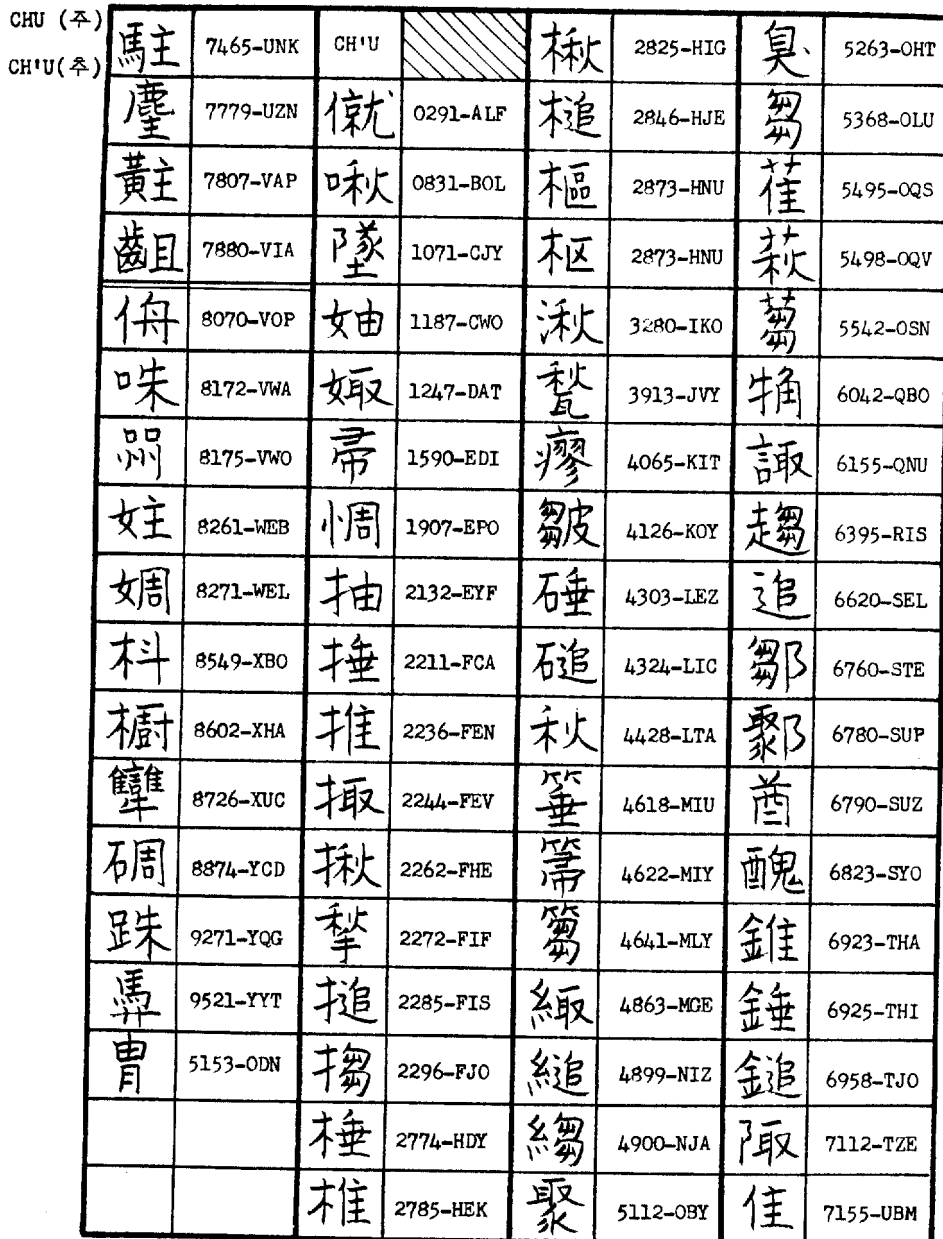 CHU (주)
CH'U(추)
駐 7465-UNK CH'U 楸 2825-HIG 臭 5263-OHT
麈 7779-UZN 僦 0291-ALF 槌 2846-HJE 芻 5368-OLU
黈 7807-VAP 啾 0831-BOL 樞 2873-HNU 萑 5495-OQS
齟 7880-VIA 墜 1071-CJY 枢 2873-HNU 萩 5498-OQV
侜 8070-VOP 妯 1187-CWO 湫 3280-IKO 蒭 5542-OSN
咮 8172-VWA 娵 1247-DAT 甃 3913-JVY 觕 6042-QBO
喌 8175-VWO 帚 1590-EDI 瘳 4065-KIT 諏 6155-QNU
妵 8261-WEB 惆 1907-EPO 皺 4126-KOY 趨 6395-RIS
婤 8271-WEL 抽 2132-EYF 硾 4303-LEZ 追 6620-SEL
枓 8549-XBO 捶 2211-FCA 磓 4324-LIC 鄒 6760-STE
橱 8602-XHA 推 2236-FEN 秋 4428-LTA 鄹 6780-SUP
犨 8726-XUC 掫 2244-FEV 箠 4618-MIU 酋 6790-SUZ
碉 8874-YCD 揪 2262-FHE 箒 4622-MIY 醜 6823-SYO
跦 9271-YQG 揫 2272-FIF 篘 4641-MLY 錐 6923-THA
9521-YYT 搥 2285-FIS 緅 4863-MGE 錘 6925-THI
冑 5153-ODN 搊 2296-FJO 縋 4899-NIZ 鎚 6958-TJO
棰 2774-HDY 縐 4900-NJA 陬 7112-TZE
椎 2785-HEK 聚 5112-OBY 隹 7155-UBM